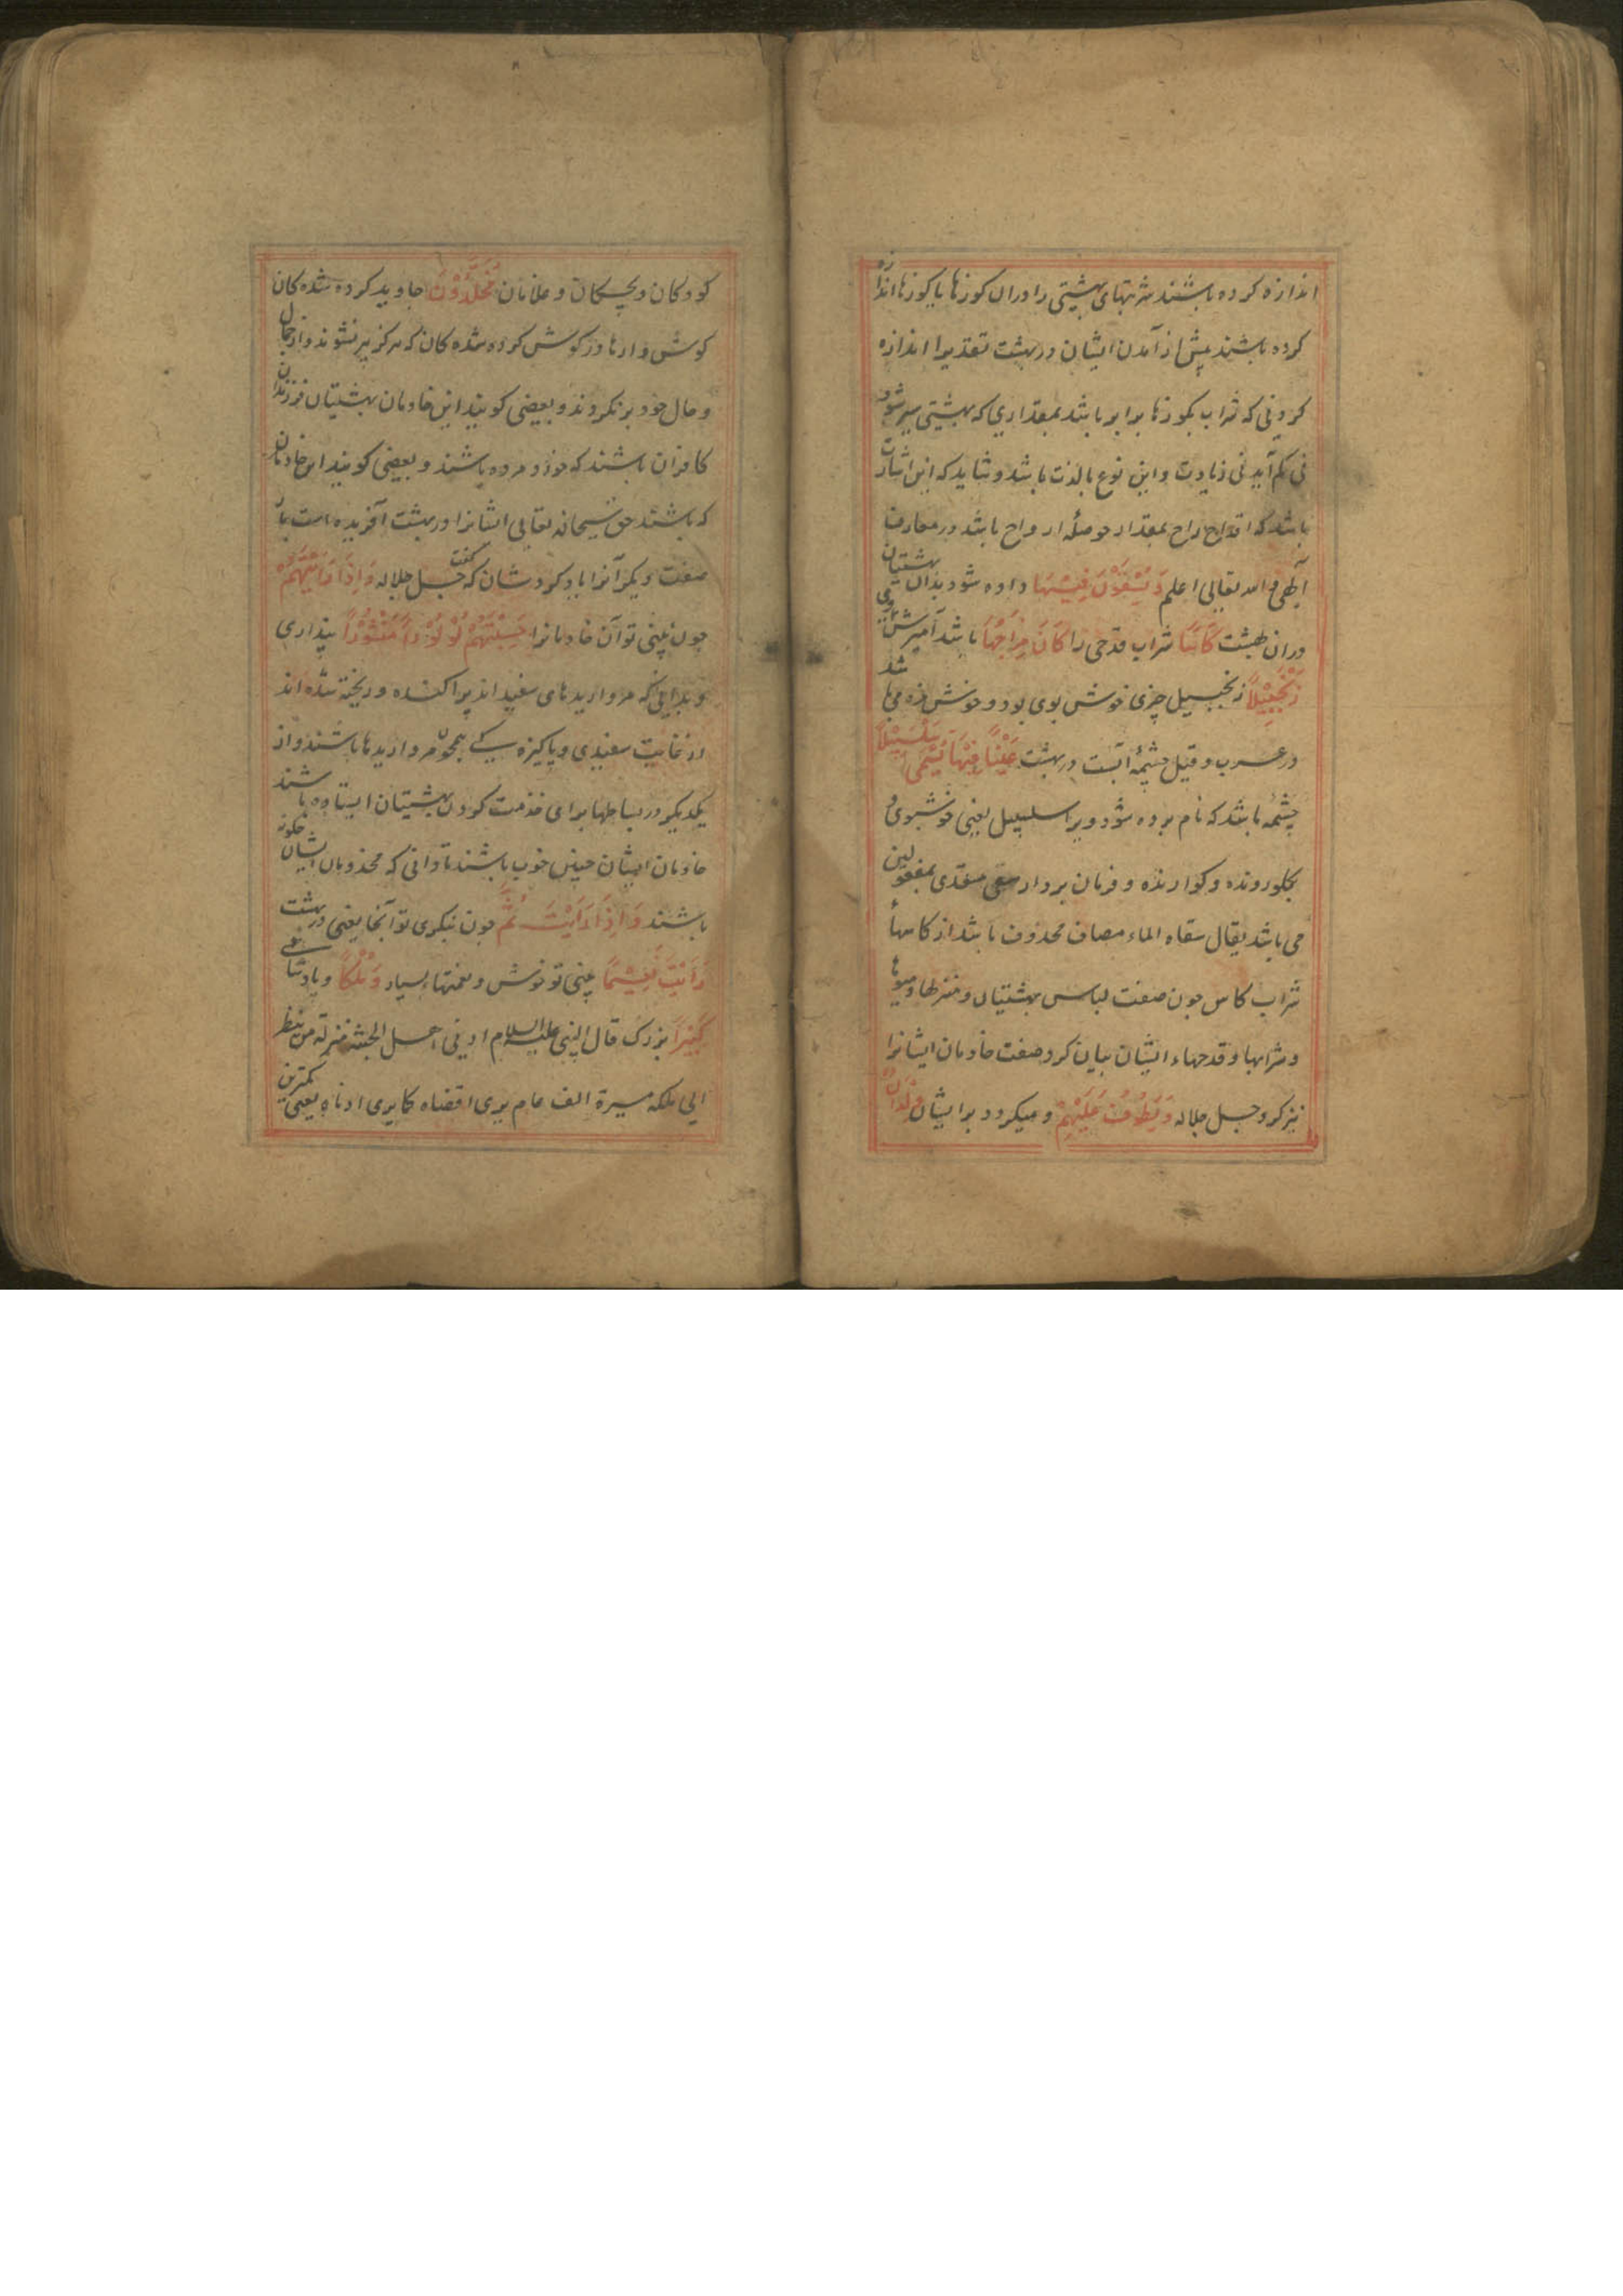 اندازه کرده باشند شربتهای بهشتی را در آن کوزها یا کوزها اندازه
کرده باشند پیش از آمدن ایشان در بهشت تقدیرا اندازه
کردنی که شراب بکوزها برابر باشد بمقداری که بهشتی سیر شود
نی کم آید نی زیادت و این نوع بالذت باشد و شاید که این اشارت
باشد که اقداح راح بمقدار حوصلهٔ ارواح باشد در معارف
آلهی و الله تعالی اعلم وَيُسْقَوْنَ فِيْهَا داده شود بدان بهشتیان
در ان بهشت كَأْسًا شراب قدحی را كَانَ مِزَاجُهَا باشد آمیزش
زَنْجَبِيْلًا زنجبیل چیزی خوش بوی بود و خوش مزه می باشد
در عرب و قیل چشمهٔ آبست در بهشت عَيْنًا فِيْهَا تُسَمّٰى سَلْسَبِيْلًا
چشمه باشد که نام برده شود ویرا سلسبیل یعنی خوشبوی و
بکلو رونده و کوارنده و فرمان بردار سقی متعدی بمفعولین
می باشد یقال سقاه الماء مضاف محذوف باشد از کاسها
شراب کاس چون صفت لباس بهشتیان و منزلها و میوها
و شرابها و قدحهاء ایشان بیان کرد صفت خادمان ایشانرا
نیز کرد جل جلاله وَيَطُوْفُ عَلَيْهِمْ و میکردد بر ایشان وِلْدَانٌ
کودکان و بچکان و غلامان مُخَلَّدُوْنَ جاوید کرده شده کان
کوشوارها در کوش کرده شده کان که هرکز پیر نشوند و از جمال
و حال خود بر نکردند و بعضی کویند این خادمان بهشتیان فرزندان
کافران باشند که خورد مرده باشند و بعضی کویند این خادمان
که باشند حق سبحانه تعالی ایشانرا در بهشت آفریده است باز
صفت دیکر آنرا یاد کرد شان که کفت جل جلاله وَاِذَا رَاَيْتَهُمْ
چون بینی تو آن خادمانرا حَسِبْتَهُمْ لُؤْلُؤًا مَنْثُوْرًا پنداری
و بدانی که مرواریدهای سفید اند پراکنده و ریخته شده اند
از غایت سفیدی و پاکیزه کی همچون مرواریدها باشند و از
یکدیکر در بساطها برای خدمت کردن بهشتیان ایستاده باشند
خادمان ایشان چنین خوب باشند تا دانی که مخدومان ایشان چکونه
باشند وَاِذَا رَاَيْتَ ثَمَّ چون بنکری تو آنجا یعنی در بهشت
رَاَيْتَ نَعِيْمًا بینی تو خوش و نعمتهاء بسیار وَمُلْكًا و پادشاهی
كَبِيْرًا بزرک قال النبی علیه السلام ادنی اهل الجنة منزلة من ینظر
الی ملکه مسیرة الف عام یری اقصاه کما یری ادناه یعنی کمترین